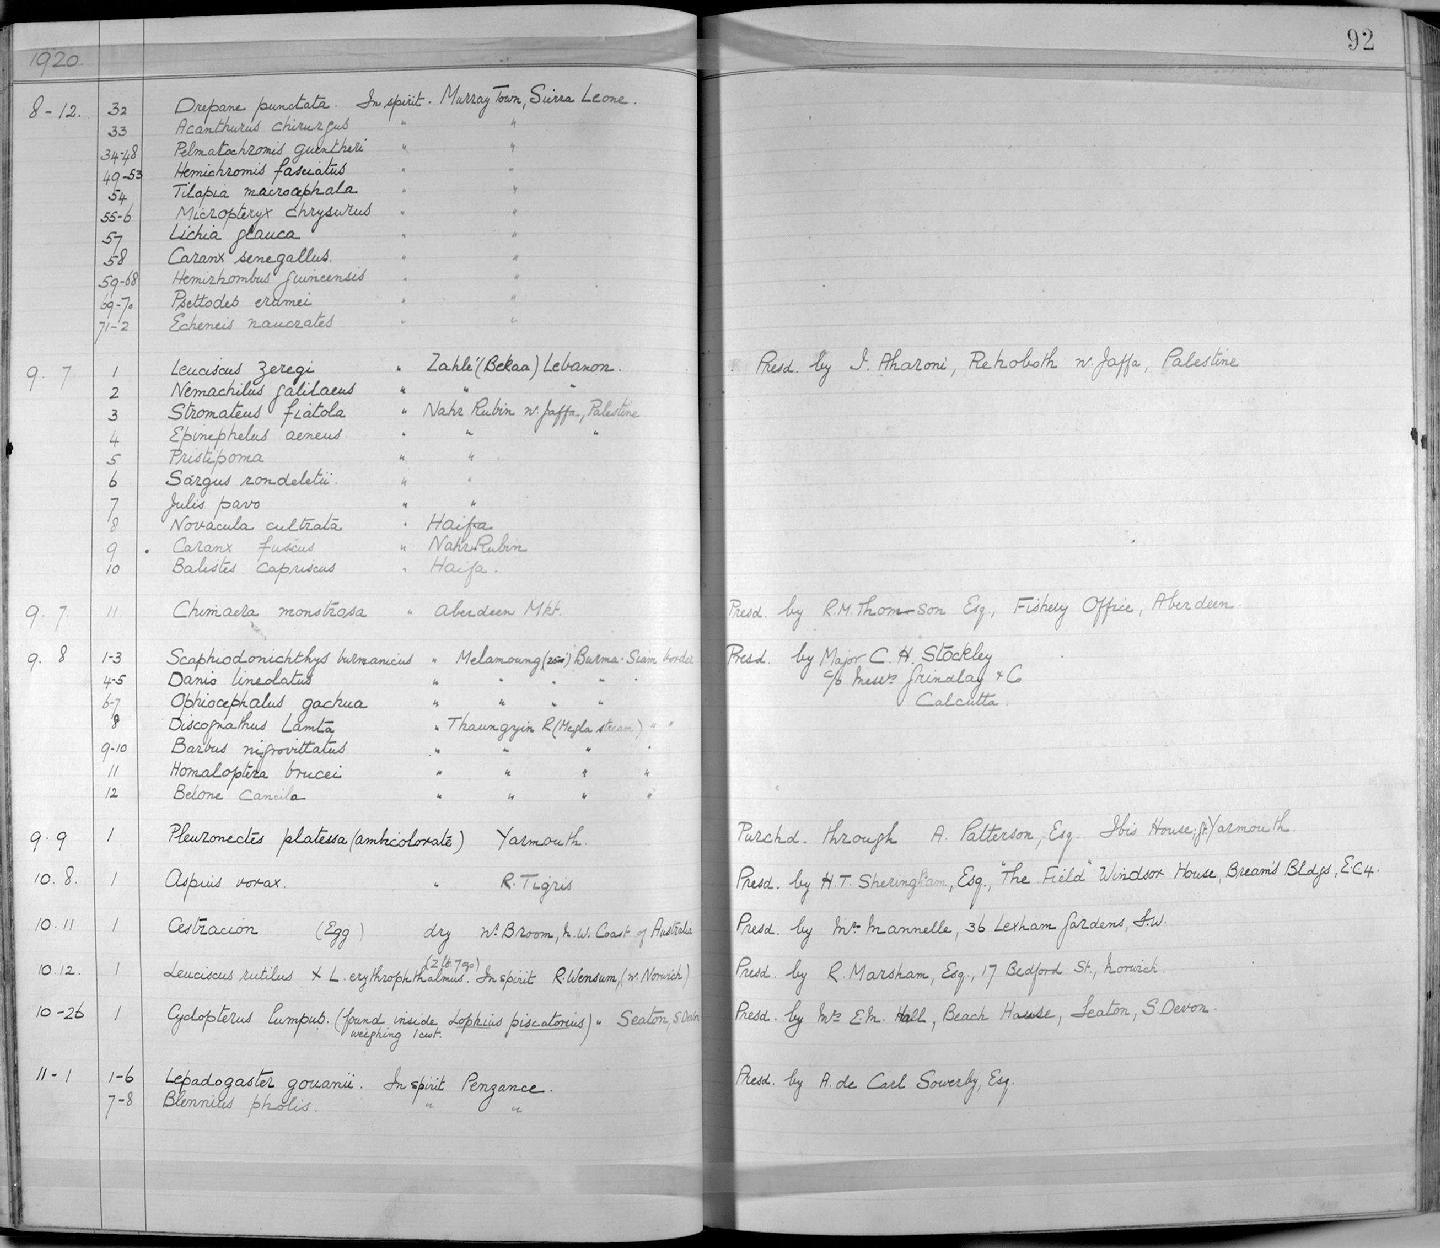 92
1920
8-12. 32 Drepane punctata. In spirit. Murray Town, Sierra Leone.
33 Acanthurus chirurgus " "
34-48 Pelmatochromis guentheri " "
49-53 Hemichromis fasciatus " "
54 Tilapia macrocephala " "
55-6 Micropteryx chrysurus " "
57 Lichia glauca " "
58 Caranx senegallus. " "
59-68 Hemirhombus guineensis " "
69-70 Psettodes erumei " "
71-2 Echeneis naucrates " "
9. 7 1 Leuciscus zeregi " Zahlé (Bekaa) Lebanon. Presd. by I. Aharoni, Rehoboth nr. Jaffa, Palestine
2 Nemachilus galilaeus " " "
3 Stromateus fiatola " Nahr Rubin nr. Jaffa, Palestine
4 Epinephelus aeneus " " "
5 Pristipoma " "
6 Sargus rondeletii. " "
7 Julis pavo " "
8 Novacula cultrata " Haifa
9 Caranx fuscus " Nahr Rubin
10 Balistes capriscus " Haifa.
9. 7 11 Chimaera monstrosa " Aberdeen Mkt. Presd by R.M. Thomson Esq., Fishery Office, Aberdeen.
9. 8 1-3 Scaphiodonichthys burmanicus " Melamoung Burma-Siam border Presd. by Major C. H. Stockley
4-5 Danio lineolatus " " " " " c/o Messrs Grindlay & Co
6-7 Ophiocephalus gachua " " " " Calcutta.
8 Discognathus Lamta " Thaungyin R (Megla stream) " "
9-10 Barbus nigrovittatus " " " "
11 Homaloptera brucei " " " "
12 Belone cancila " " " "
9 9 1 Pleuronectes platessa (ambicolorate) Yarmouth. Purchd. through A. Patterson, Esq. Ibis House, Gt Yarmouth
10. 8. 1 Aspius vorax. " R. Tigris Presd. by H.T. Sheringham, Esq., "The Field" Windsor House, Bream's Bldgs, E.C4.
10. 11 1 Cestracion (Egg) dry nr. Broom, N.W. Coast of Australia Presd. by Mrs Mannelle, 36 Lexham Gardens, S.W.
(2 lb. 7 oz)
10.12. 1 Leuciscus rutilus x L. erythrophthalmus. In spirit R. Wensum, (nr. Norwich) Presd. by R. Marsham, Esq., 17 Bedford St., Norwich.
10-26 1 Cyclopterus lumpus. (found inside Lophius piscatorius) " Seaton, S. Devon Presd. by Mrs E.M. Hall, Beach House, Seaton, S. Devon.
weighing 1 cwt.
11-1 1-6 Lepadogaster gouanii. In spirit Penzance. Presd. by A. de Carl Sowerby, Esq.
7-8 Blennius pholis. " "